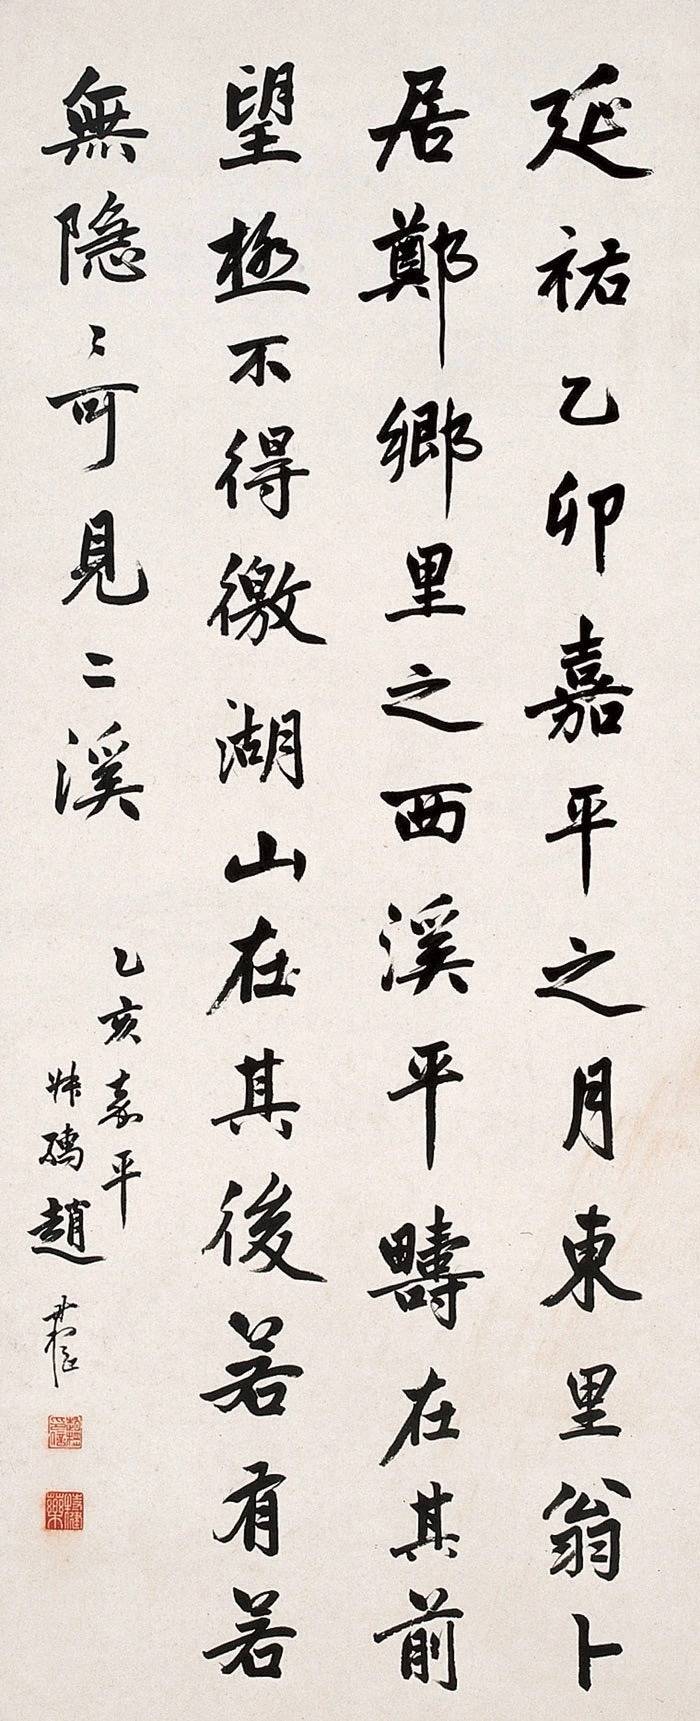 延祐乙卯嘉平之月東里翁卜
居鄭鄉里之西溪平疇在其前
望極不得徼湖山在其後若有若
無隱〻可見二溪
乙亥嘉平
叔孺趙